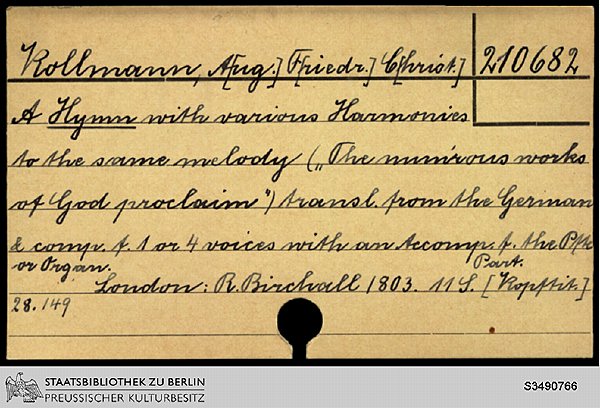 Kollmann, A[ug.] F[riedr.] C[hrist.] 210682
A Hymn with various Harmonies
to the same melody („The numrous works
of God proclaim") transl. from the German
& comp. f. 1 or 4 voices with an Accomp. f. the Pfte
or Organ. Part.
London: R. Birchall 1803. 11 S. [Kopftit.]
28.149
STAATSBIBLIOTHEK ZU BERLIN
PREUSSISCHER KULTURBESITZ
S3490766